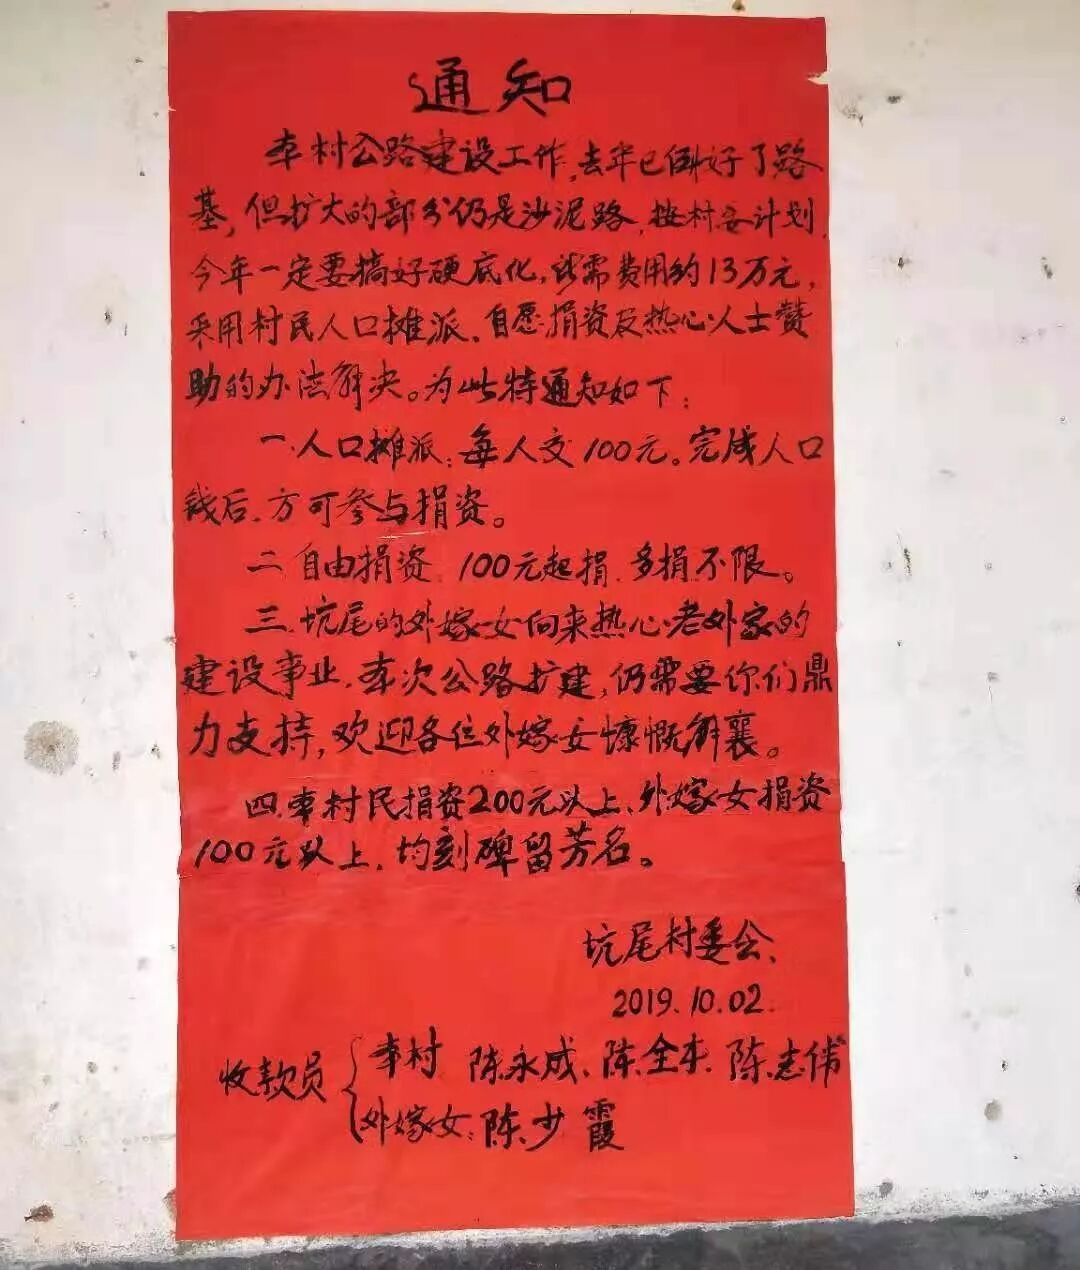 通知
本村公路建设工作,去年已倒好了路
基,但扩大的部分仍是沙泥路,按村委计划,
今年一定要搞好硬底化,所需费用约13万元,
采用村民人口摊派、自愿捐资及热心人士赞
助的办法解决。为此特通知如下:
一.人口摊派:每人交100元。完成人口
钱后、方可参与捐资。
二.自由捐资、100元起捐、多捐不限。
三.坑尾的外嫁女向来热心老外家的
建设事业、本次公路扩建,仍需要你们鼎
力支持,欢迎各位外嫁女慷慨解襄。
四.本村民捐资200元以上、外嫁女捐资
100元以上、均刻碑留芳名。
坑尾村委会、
2019.10.02.
收款员
本村 陈永成、陈全本、陈志伟
外嫁女:陈少霞